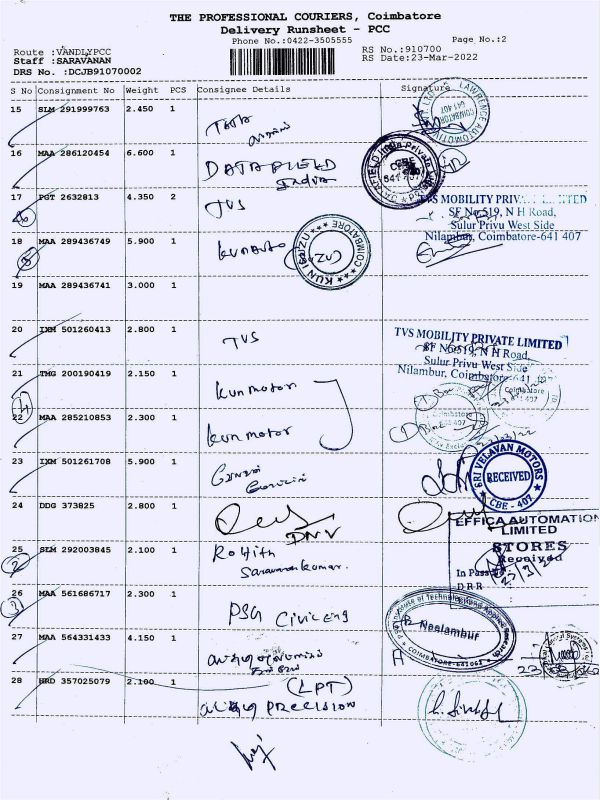 THE PROFESSIONAL COURIERS, Coimbatore
Delivery Runsheet - PCC
Phone No.:0422-3505555 Page No.:2
Route :VANDLYPCC RS No.:910700
Staff :SARAVANAN RS Date:23-Mar-2022
DRS No. :DCJB91070002
S No Consignment No Weight PCS Consignee Details Signature
15 SLM 291999763 2.450 1 TATA
LAWRENCE AUTOMOTI
COIMBATORE
641 407
16 MAA 286120454 6.600 1 DATAFIELD
India
DATAFIELD India Private
CBE
641 407
17 PGT 2632813 4.350 2 TVS
TVS MOBILITY PRIVATE LIMITED
SF No.519, N H Road,
Sulur Privu West Side
Nilambur, Coimbatore-641 407
18 MAA 289436749 5.900 1 KUN Auto
COIMBATORE
19 MAA 289436741 3.000 1
20 IXM 501260413 2.800 1 TVS
TVS MOBILITY PRIVATE LIMITED
SF No.519, N H Road,
Sulur Privu West Side
Nilambur, Coimbatore-641
21 TMG 200190419 2.150 1 Kun motor
4
22 MAA 285210853 2.300 1 Kun motor
23 IXM 501261708 5.900 1
SRI VELAVAN MOTORS
RECEIVED
CBE - 407
24 DDG 373825 2.800 1
DNV
EFFICA AUTOMATION
LIMITED
STORES
Received
In Pass No
D R R
25 SLM 292003845 2.100 1 Rohith
Saravanakumar.
2
26 MAA 561686717 2.300 1 PSG Civil Eng
3
Neelambur
COIMBATORE-641062
27 MAA 564331433 4.150 1
28 HRD 357025079 2.100 1 (LPT)
PRECISION